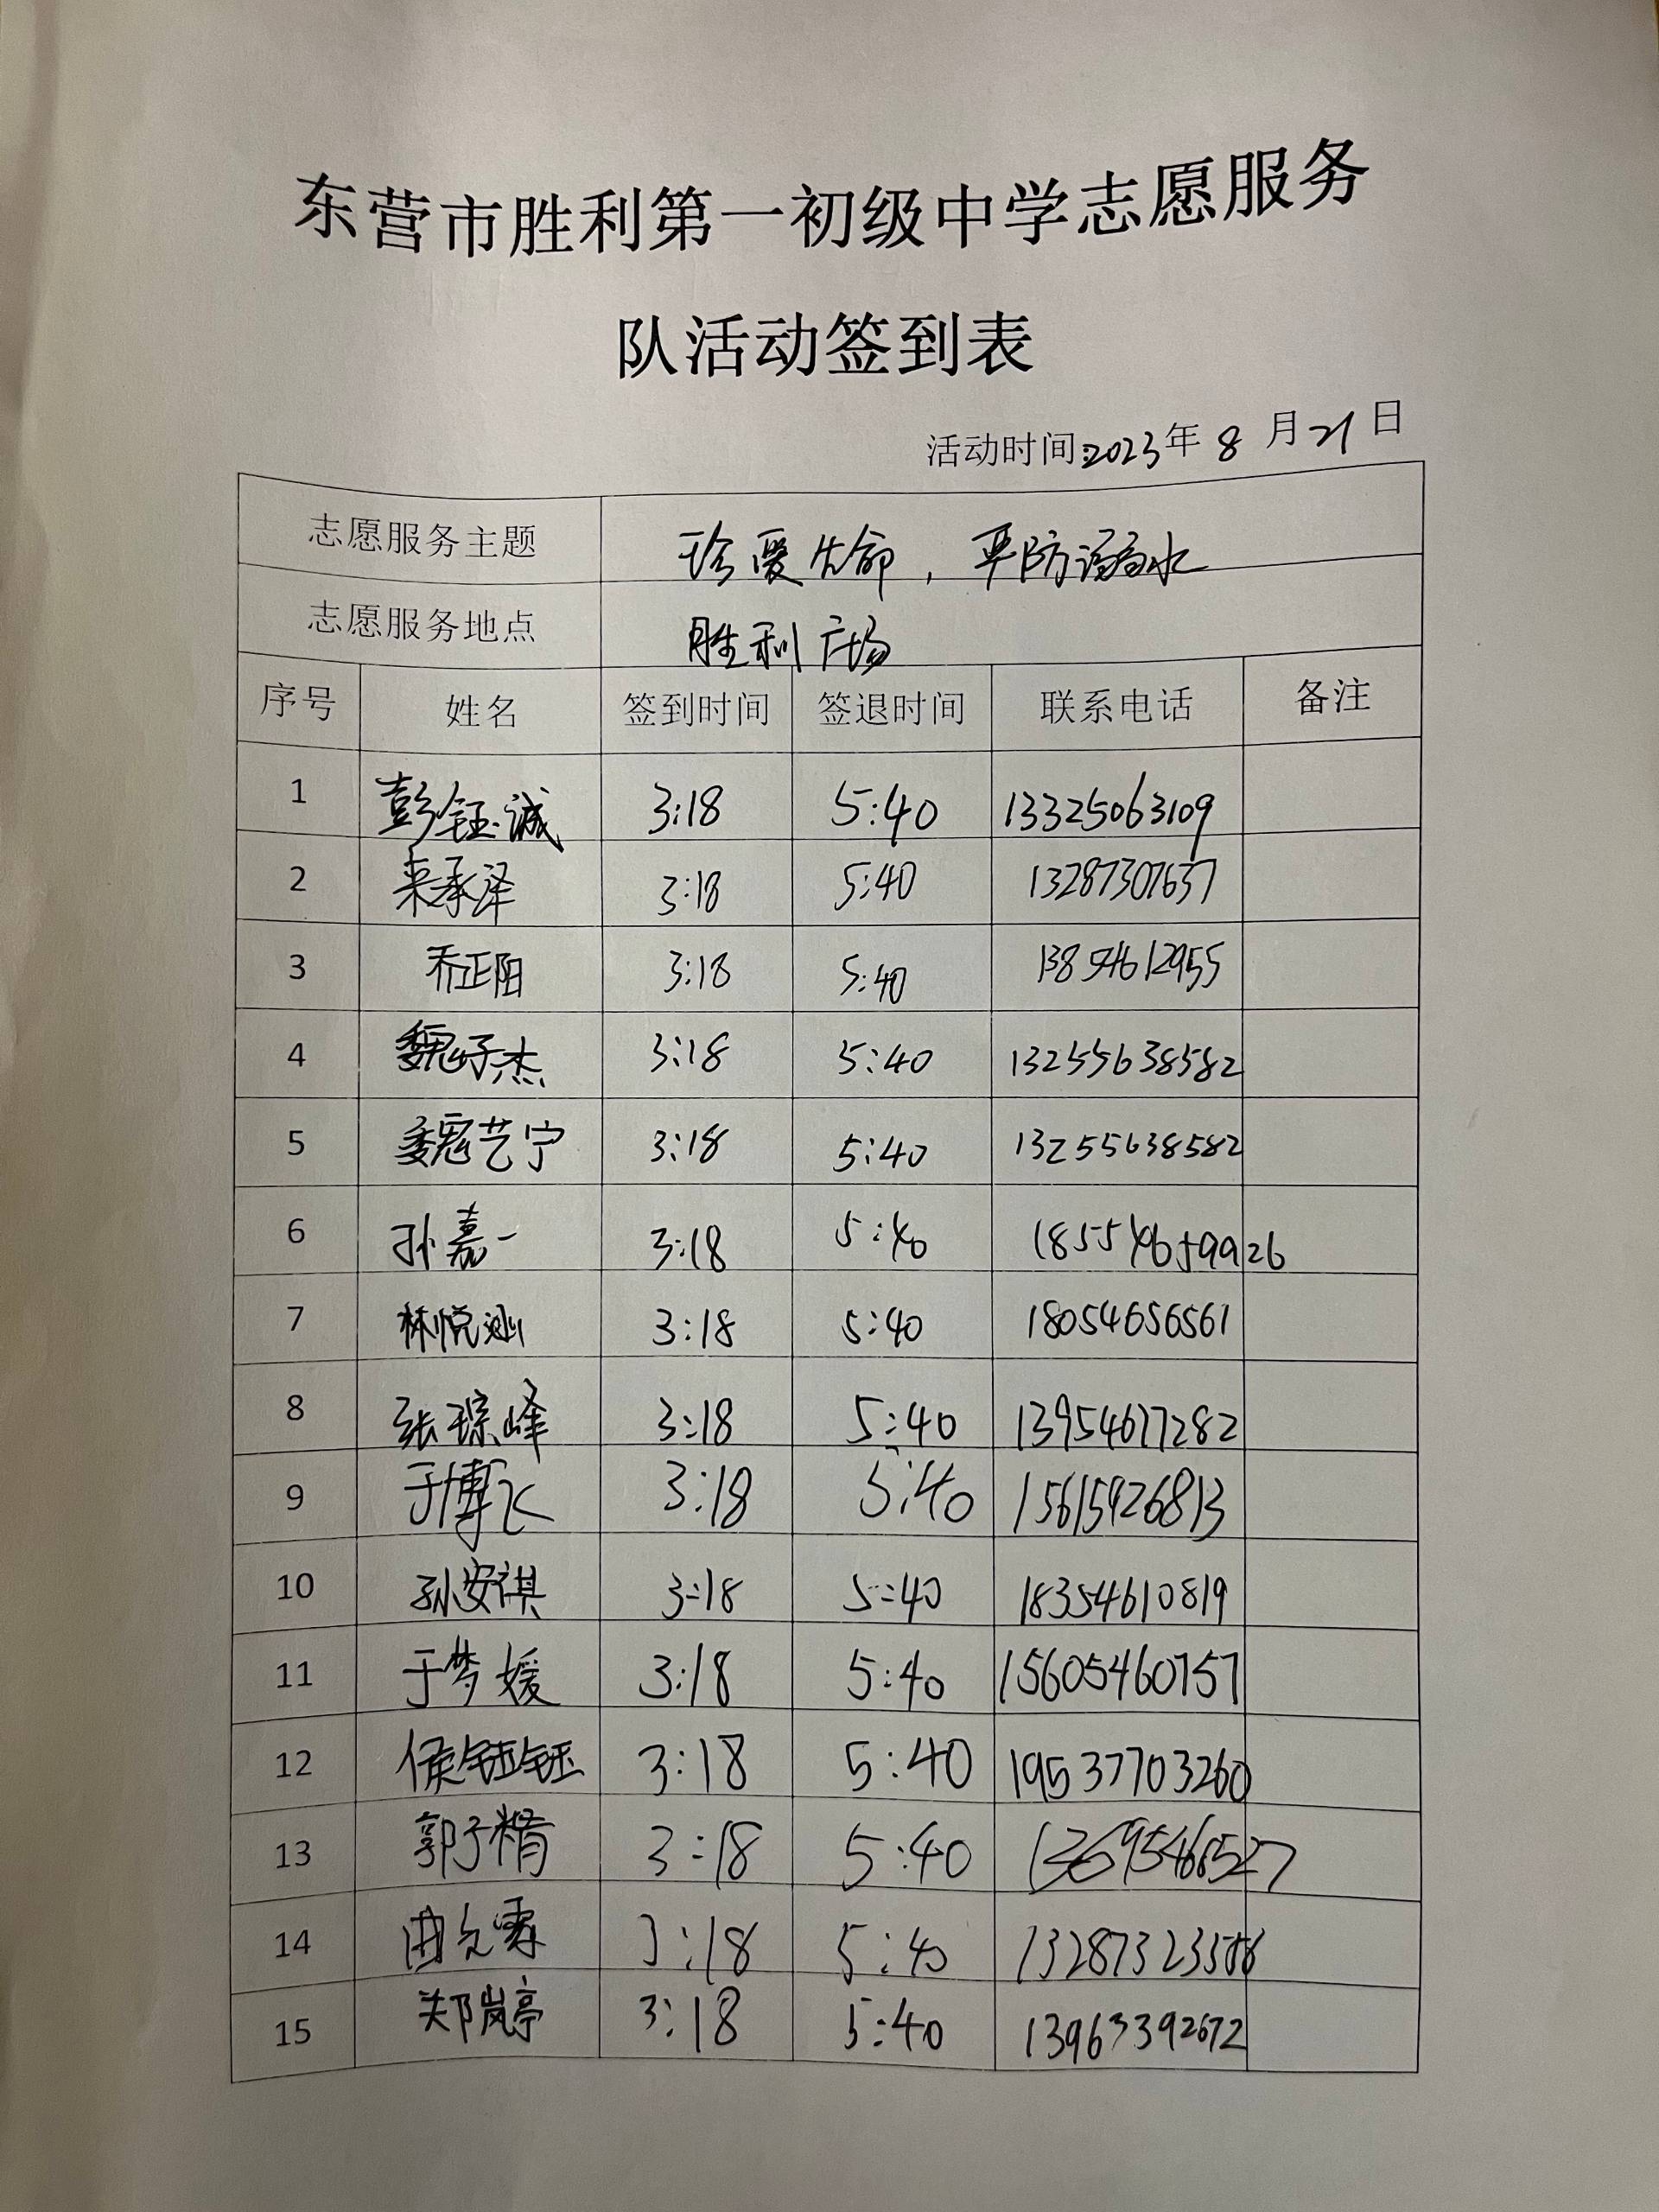 东营市胜利第一初级中学志愿服务
队活动签到表
活动时间:2023年 8 月 21 日
志愿服务主题 珍爱生命，严防溺水
志愿服务地点 胜利广场
序号 姓名 签到时间 签退时间 联系电话 备注
1 彭钰诚 3:18 5:40 13325063109
2 来承泽 3:18 5:40 13287307637
3 乔正阳 3:18 5:40 13854612955
4 魏好杰 3:18 5:40 13255638582
5 魏艺宁 3:18 5:40 13255638582
6 孙嘉一 3:18 5:40
7 林悦 3:18 5:40 18054656561
8 张琮峰 3:18 5:40 13954617282
9 于博飞 3:18 5:40 15615426813
10 孙安祺 3:18 5:40 18354610819
11 于梦媛 3:18 5:40 15605460757
12 侯钰钰 3:18 5:40 19537703260
13 郭子精 3:18 5:40
14 曲允霖 3:18 5:40
15 郑岚亭 3:18 5:40 13963392672